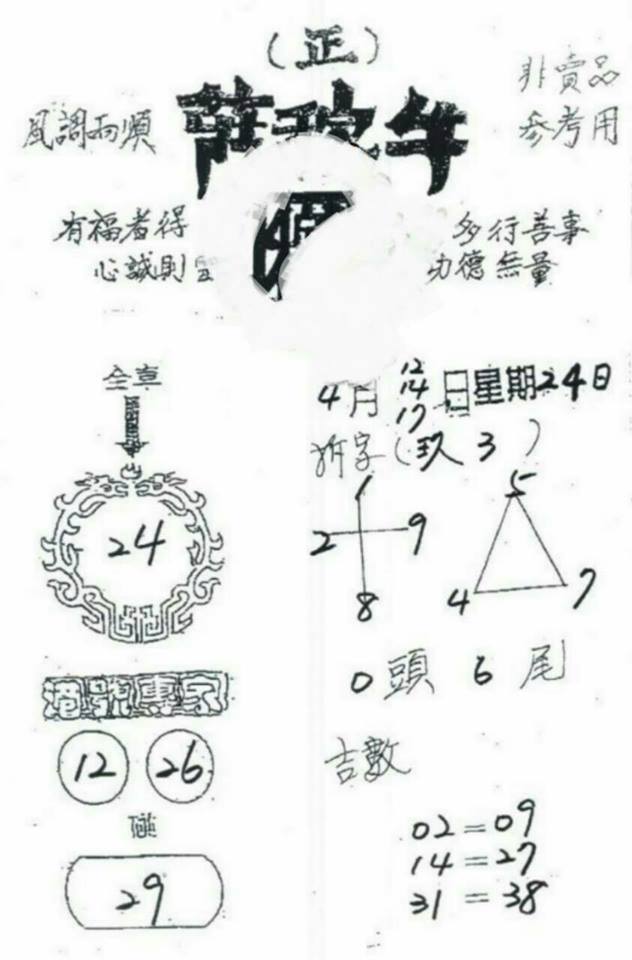 (正)
非賣品
風調雨順
參考用
有福者得
多行善事
心誠則
功德無量
全車
4月 12 14 17 日星期24日
拆字( 3 )
1
5
2 9
24
8
4 7
0頭 6尾
港號專家
12 26
吉數
碰
02=09
14=27
29
31=38